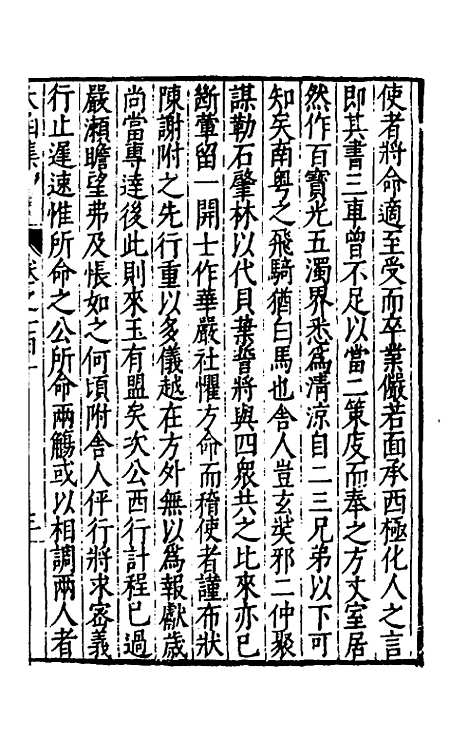 使者將命適至受而卒業儼若面承西極化人之言
即其書三車曾不足以當二策庋而奉之方丈室居
然作百寶光五濁界悉為清涼自二三兄弟以下可
知矣南粤之飛騎猶白馬也舍人豈玄奘邪二仲聚
謀勒石肇林以代貝葉誓將與四衆共之比來亦已
斷葷留一開士作華嚴社懼方命而稽使者謹布狀
陳謝附之先行重以多儀越在方外無以為報獻歲
尚當專達後此則來王有盟矣次公西行計程已過
嚴瀨瞻望弗及悵如之何頃附舍人伻行將求密義
行止遲速惟所命之公所命兩觴或以相調兩人者
太函集
卷之一百一